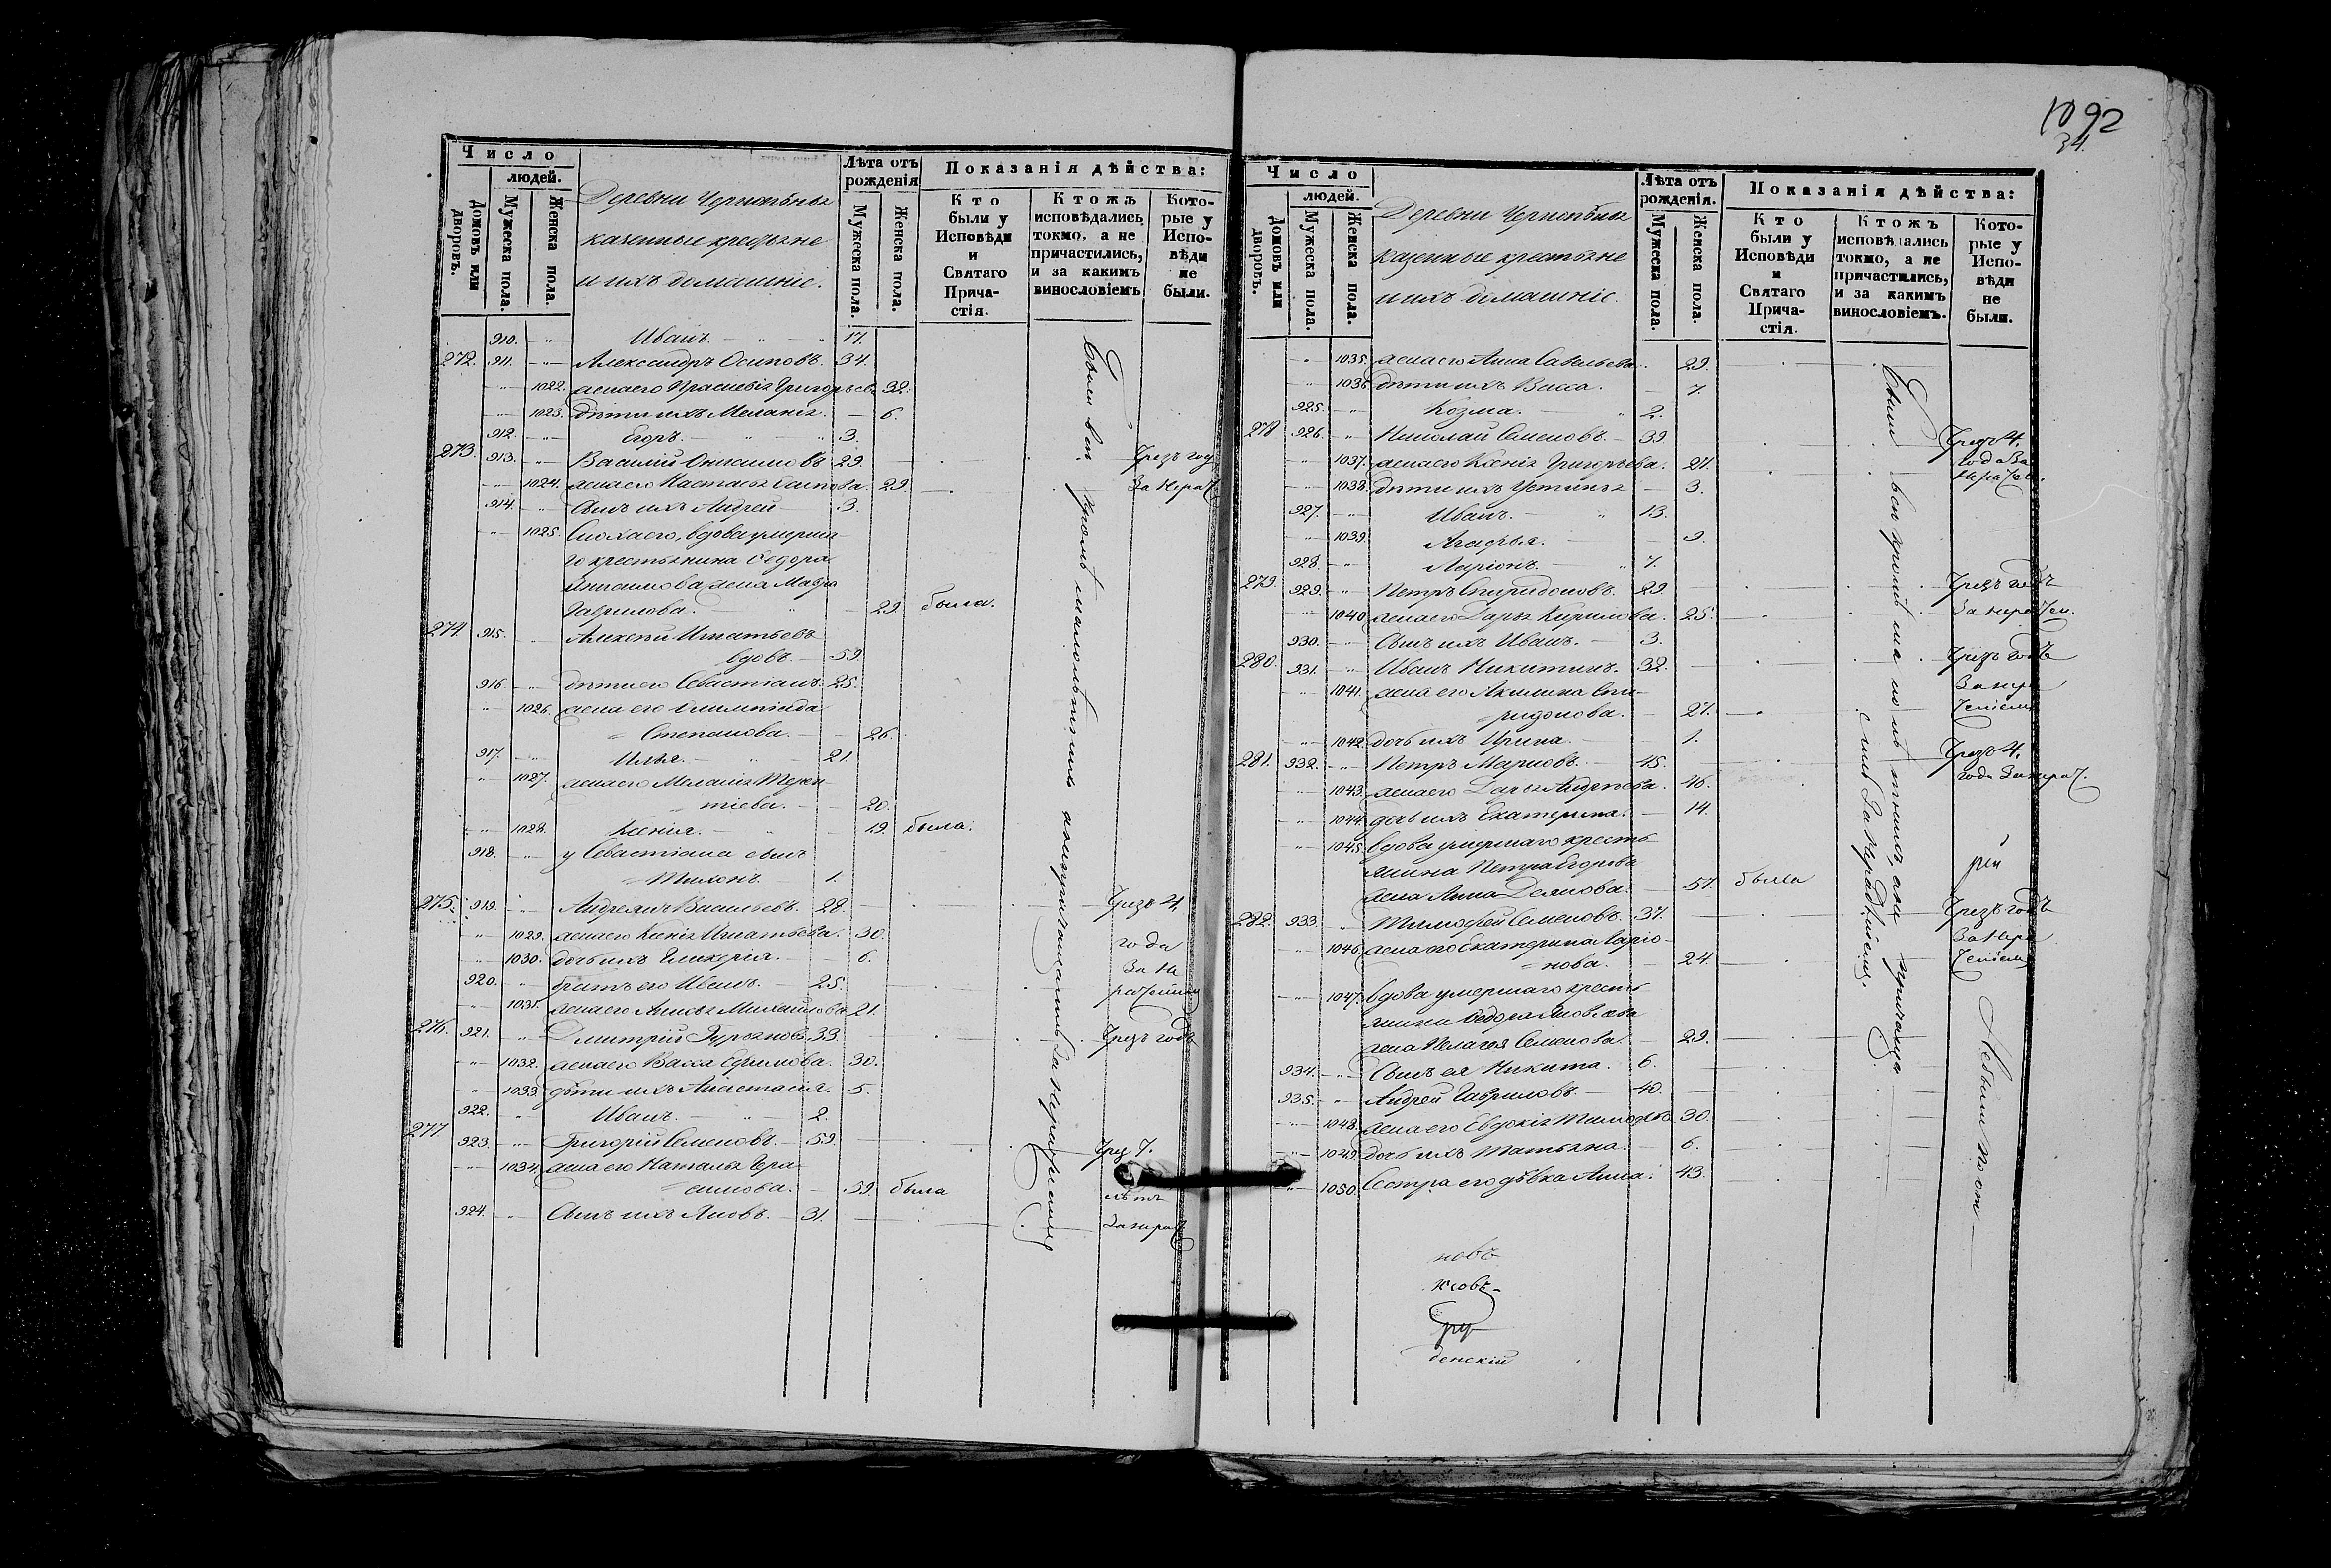 Число
людей.
Домовъ или дворовъ.
Мужеска пола.
Женска пола.
Деревни
казенные крестьяне
и ихъ домашніе.
Лѣта отъ
рожденія
Мужеска пола.
Женска пола.
Показанія дѣйства:
Кто
были у
Исповѣди
и
Святаго
Прича-
стія.
Ктожъ
исповѣдались
токмо, а не
причастились,
и за какимъ
винословіемъ
Кото-
рые у
Испо-
вѣди
не
были.
910. Иванъ. 17.
272. 911. Александръ Осиповъ. 34.
1022. жена его Праскевія Григорьева 32.
1023. дѣти ихъ Меланія. 6.
912. Егоръ. 3.
273. 913. Василій Онисимовъ 29. Чрезъ год
1024. жена его Настасья Осипова. 29. За нерач
914. Сынъ ихъ Андрей 3.
1025. Сноха его, вдова умерша-
го крестьянина Ѳедора
Онисимова жена Мавра
Гаврилова. 29. была.
274. 915. Алексѣй Игнатьевъ
вдовъ. 59.
916. дѣти его Севастіанъ. 25.
1026. жена его Олимпіада
Степанова. 26.
917. Илья. 21.
1027. жена его Меланія Терен-
тіева. 20.
1028. Ксенія. 19. была.
918. у Севастіана сынъ
Тихонъ. 1.
275. 919. Андреянъ Васильевъ. 28. Чрезъ 4,
1029. жена его Ксенія Игнатьева. 30. года
1030. дочь ихъ Гликерія. 6. За не
920. братъ его Иванъ. 25. раченіем
1031. жена его Анисья Михайлова 21.
276. 921. Дмитрій 33. Чрезъ годъ
1032. жена его Васса Ефимова. 30.
1033. дѣти ихъ Анастасія. 5.
922. Иванъ. 2.
277. 923. Григорій Семеновъ. 59. Чрез 7.
1034. жена его Наталья Гера-
симова. 59. была лѣтъ
924. Сынъ ихъ Яковъ. 31. За нерач
Были всѣ кромѣ малолѣтнихъ а непричащались за нерадѣніемъ
1092
34.
Число
людей.
Домовъ или дворовъ.
Мужеска пола.
Женска пола.
Деревни
казенные крестьяне
и ихъ домашніе.
Лѣта отъ
рожденія.
Мужеска пола.
Женска пола.
Показанія дѣйства:
Кто
были у
Исповѣди
и
Святаго
Прича-
стія.
Ктожъ
исповѣдались
токмо, а не
причастились,
и за какимъ
винословіемъ.
Кото-
рые у
Испо-
вѣди
не
были.
1035. жена его Анна Савельева. 29.
1036. дѣти ихъ Васса. 7.
925. Козма. 2.
278 926. Николай Семеновъ. 39 Чрезъ 4,
1037. жена его Ксенія Григорьева. 27. года За
1038. дѣти ихъ Устинья 3. нерачен.
927. Иванъ. 13.
1039. Агафья. 9.
928. Ларіонъ. 7.
279. 929. Петръ Спиридоновъ. 29. Чрезъ годъ
1040. жена его Дарья Кирилова. 25. За нерачен.
930. Сынъ ихъ Иванъ. 3.
280. 931. Иванъ Никитинъ. 32. Чрезъ годъ
1041. жена его Акилина Спи- За нера
ридонова. 27. ченіем
1042. дочь ихъ Ирина. 1.
281. 932. Петръ Марковъ. 45. Чрезъ 4,
1043. жена его Дарья Андреева. 46. года За нерач.
1044. дочь ихъ Екатерина. 14.
1045. вдова умершаго кресть
янина Петра Егорова
жена Анна 57. была
рей
282. 933. Тимофей Семеновъ. 37. Чрезъ годъ
1046. жена его Екатерина Ларіо- За нера
нова. 24. ченіем
1047. вдова умершаго кресть
янина Ѳедора Яковлева
жена Пелагея Семенова. 29.
934. Сынъ ея Никита. 6.
935. Андрей Гавриловъ. 40.
1048. жена его Евдокія Тимофѣева 30.
1049. дочь ихъ Татьяна. 6.
1050. Сестра его дѣвка Анна. 43.
Были всѣ кромѣ малолѣтнихъ, а не причаща
лись за нерадѣніемъ.
новъ
ковъ
ру
денскій